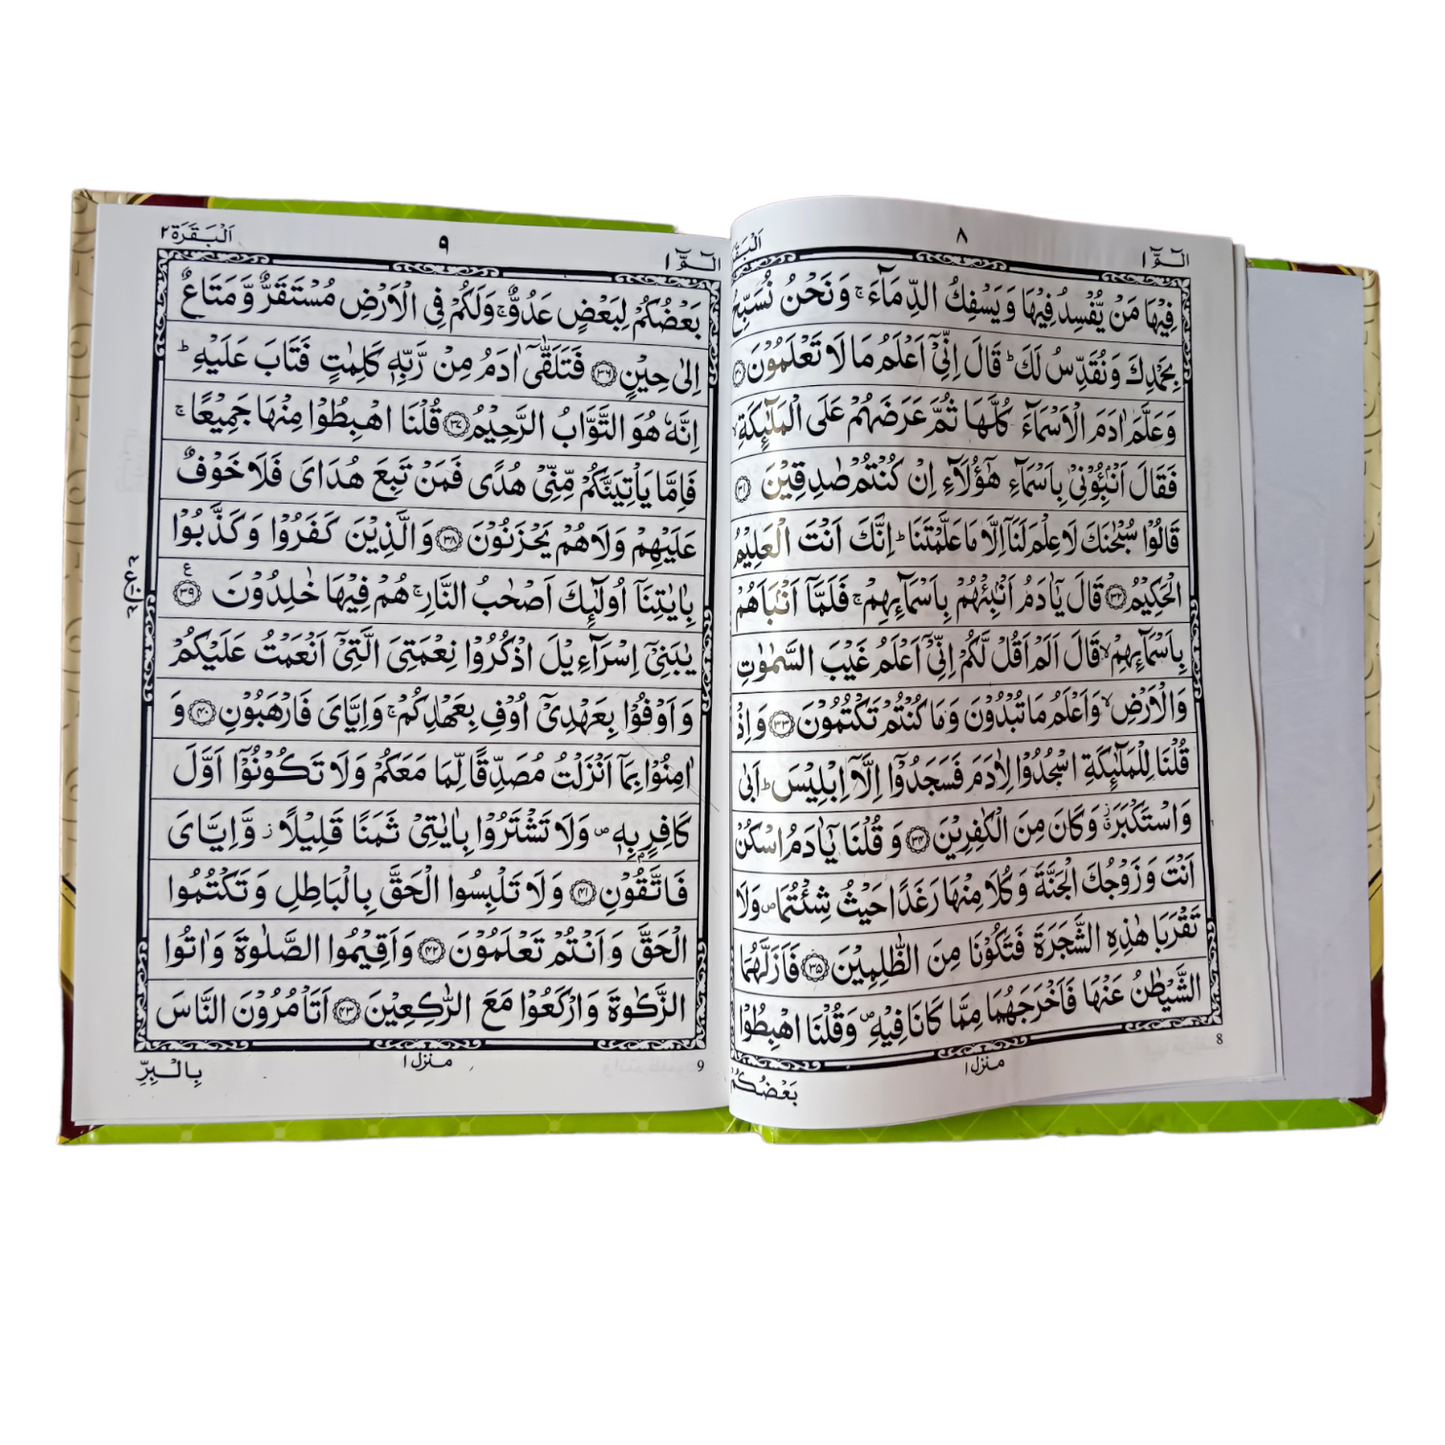 الٓمّٓ ١
٨
فِيْهَا مَنْ يُّفْسِدُ فِيْهَا وَيَسْفِكُ الدِّمَآءَ ۚ وَنَحْنُ نُسَبِّحُ
بِحَمْدِكَ وَنُقَدِّسُ لَكَ ؕ قَالَ اِنِّىْٓ اَعْلَمُ مَا لَا تَعْلَمُوْنَ ۝۳۰
وَعَلَّمَ اٰدَمَ الْاَسْمَآءَ كُلَّهَا ثُمَّ عَرَضَهُمْ عَلَى الْمَلٰٓئِكَةِ ۙ
فَقَالَ اَنْۢبِـُٔوْنِىْ بِاَسْمَآءِ هٰٓؤُلَآءِ اِنْ كُنْتُمْ صٰدِقِيْنَ ۝۳۱
قَالُوْا سُبْحٰنَكَ لَا عِلْمَ لَنَآ اِلَّا مَا عَلَّمْتَنَا ؕ اِنَّكَ اَنْتَ الْعَلِيْمُ
الْحَكِيْمُ ۝۳۲ قَالَ يٰٓاٰدَمُ اَنْۢبِئْهُمْ بِاَسْمَآئِهِمْ ۚ فَلَمَّآ اَنْۢبَاَهُمْ
بِاَسْمَآئِهِمْ ۙ قَالَ اَلَمْ اَقُلْ لَّكُمْ اِنِّىْٓ اَعْلَمُ غَيْبَ السَّمٰوٰتِ
وَالْاَرْضِ ۙ وَاَعْلَمُ مَا تُبْدُوْنَ وَمَا كُنْتُمْ تَكْتُمُوْنَ ۝۳۳ وَاِذْ
قُلْنَا لِلْمَلٰٓئِكَةِ اسْجُدُوْا لِاٰدَمَ فَسَجَدُوْٓا اِلَّآ اِبْلِيْسَ ؕ اَبٰى
وَاسْتَكْبَرَ ۫ وَكَانَ مِنَ الْكٰفِرِيْنَ ۝۳۴ وَقُلْنَا يٰٓاٰدَمُ اسْكُنْ
اَنْتَ وَزَوْجُكَ الْجَنَّةَ وَكُلَا مِنْهَا رَغَدًا حَيْثُ شِئْتُمَا ۪ وَلَا
تَقْرَبَا هٰذِهِ الشَّجَرَةَ فَتَكُوْنَا مِنَ الظّٰلِمِيْنَ ۝۳۵ فَاَزَلَّهُمَا
الشَّيْطٰنُ عَنْهَا فَاَخْرَجَهُمَا مِمَّا كَانَا فِيْهِ ۪ وَقُلْنَا اهْبِطُوْا
منزل ١
8
بَعْضُكُمْ
الٓمّٓ ١
٩
اَلْبَقَرَة ٢
بَعْضُكُمْ لِبَعْضٍ عَدُوٌّ ۚ وَلَكُمْ فِى الْاَرْضِ مُسْتَقَرٌّ وَّمَتَاعٌ
اِلٰى حِيْنٍ ۝۳۶ فَتَلَقّٰٓى اٰدَمُ مِنْ رَّبِّهٖ كَلِمٰتٍ فَتَابَ عَلَيْهِ ؕ
اِنَّهٗ هُوَ التَّوَّابُ الرَّحِيْمُ ۝۳۷ قُلْنَا اهْبِطُوْا مِنْهَا جَمِيْعًا ۚ
فَاِمَّا يَاْتِيَنَّكُمْ مِّنِّىْ هُدًى فَمَنْ تَبِعَ هُدَاىَ فَلَا خَوْفٌ
عَلَيْهِمْ وَلَا هُمْ يَحْزَنُوْنَ ۝۳۸ وَالَّذِيْنَ كَفَرُوْا وَكَذَّبُوْا
بِاٰيٰتِنَآ اُولٰٓئِكَ اَصْحٰبُ النَّارِ ۚ هُمْ فِيْهَا خٰلِدُوْنَ ۝۳۹ ع
يٰبَنِىْٓ اِسْرَآءِيْلَ اذْكُرُوْا نِعْمَتِىَ الَّتِىْٓ اَنْعَمْتُ عَلَيْكُمْ
وَاَوْفُوْا بِعَهْدِىْٓ اُوْفِ بِعَهْدِكُمْ ۚ وَاِيَّاىَ فَارْهَبُوْنِ ۝۴۰ وَ
اٰمِنُوْا بِمَآ اَنْزَلْتُ مُصَدِّقًا لِّمَا مَعَكُمْ وَلَا تَكُوْنُوْٓا اَوَّلَ
كَافِرٍۢ بِهٖ ۪ وَلَا تَشْتَرُوْا بِاٰيٰتِىْ ثَمَنًا قَلِيْلًا ؗ وَّاِيَّاىَ
فَاتَّقُوْنِ ۝۴۱ وَلَا تَلْبِسُوا الْحَقَّ بِالْبَاطِلِ وَتَكْتُمُوا
الْحَقَّ وَاَنْتُمْ تَعْلَمُوْنَ ۝۴۲ وَاَقِيْمُوا الصَّلٰوةَ وَاٰتُوا
الزَّكٰوةَ وَارْكَعُوْا مَعَ الرّٰكِعِيْنَ ۝۴۳ اَتَاْمُرُوْنَ النَّاسَ
منزل ١
9
بِالْبِرِّ